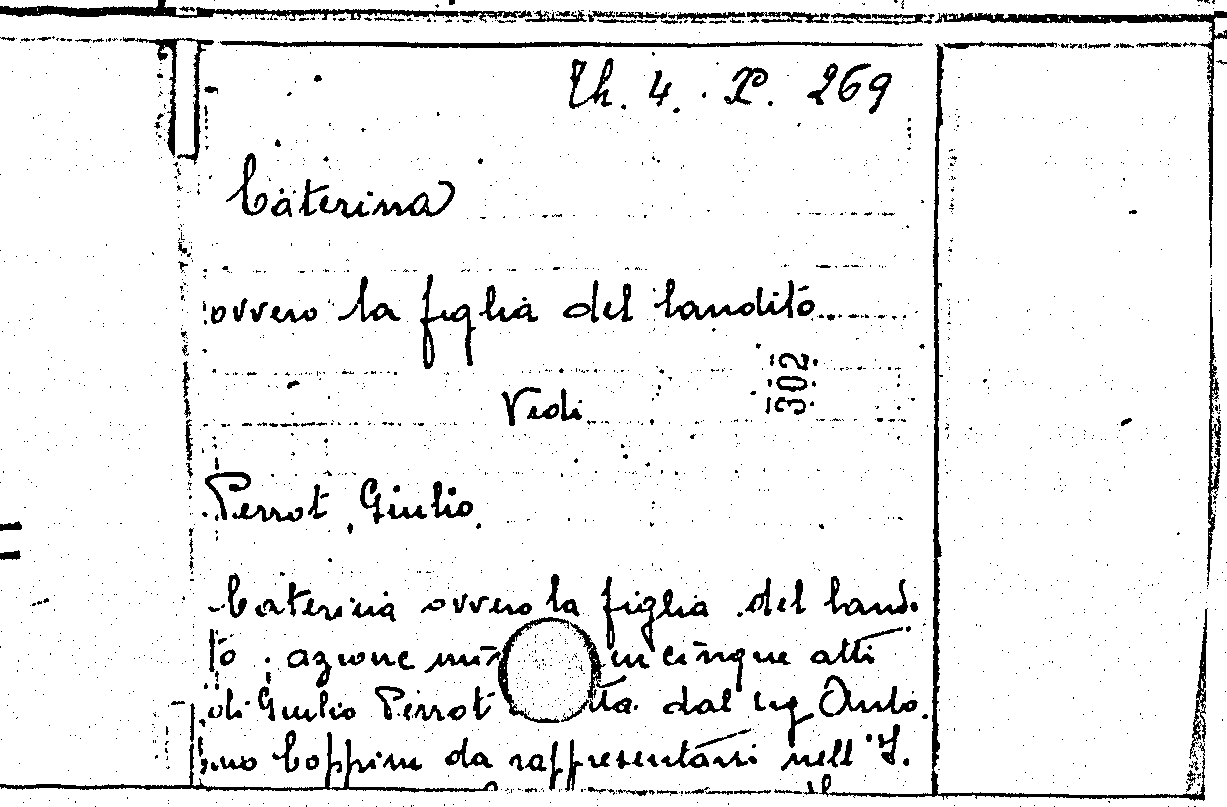 Th. 4. P. 269
Caterina
ovvero la figlia del bandito
302
Vedi
Perrot, Giulio
Caterina ovvero la figlia del bandi-
to, azione in cinque atti
di Giulio Perrot dal sig Anto
nio Coppini da rappresentarsi nell' I.